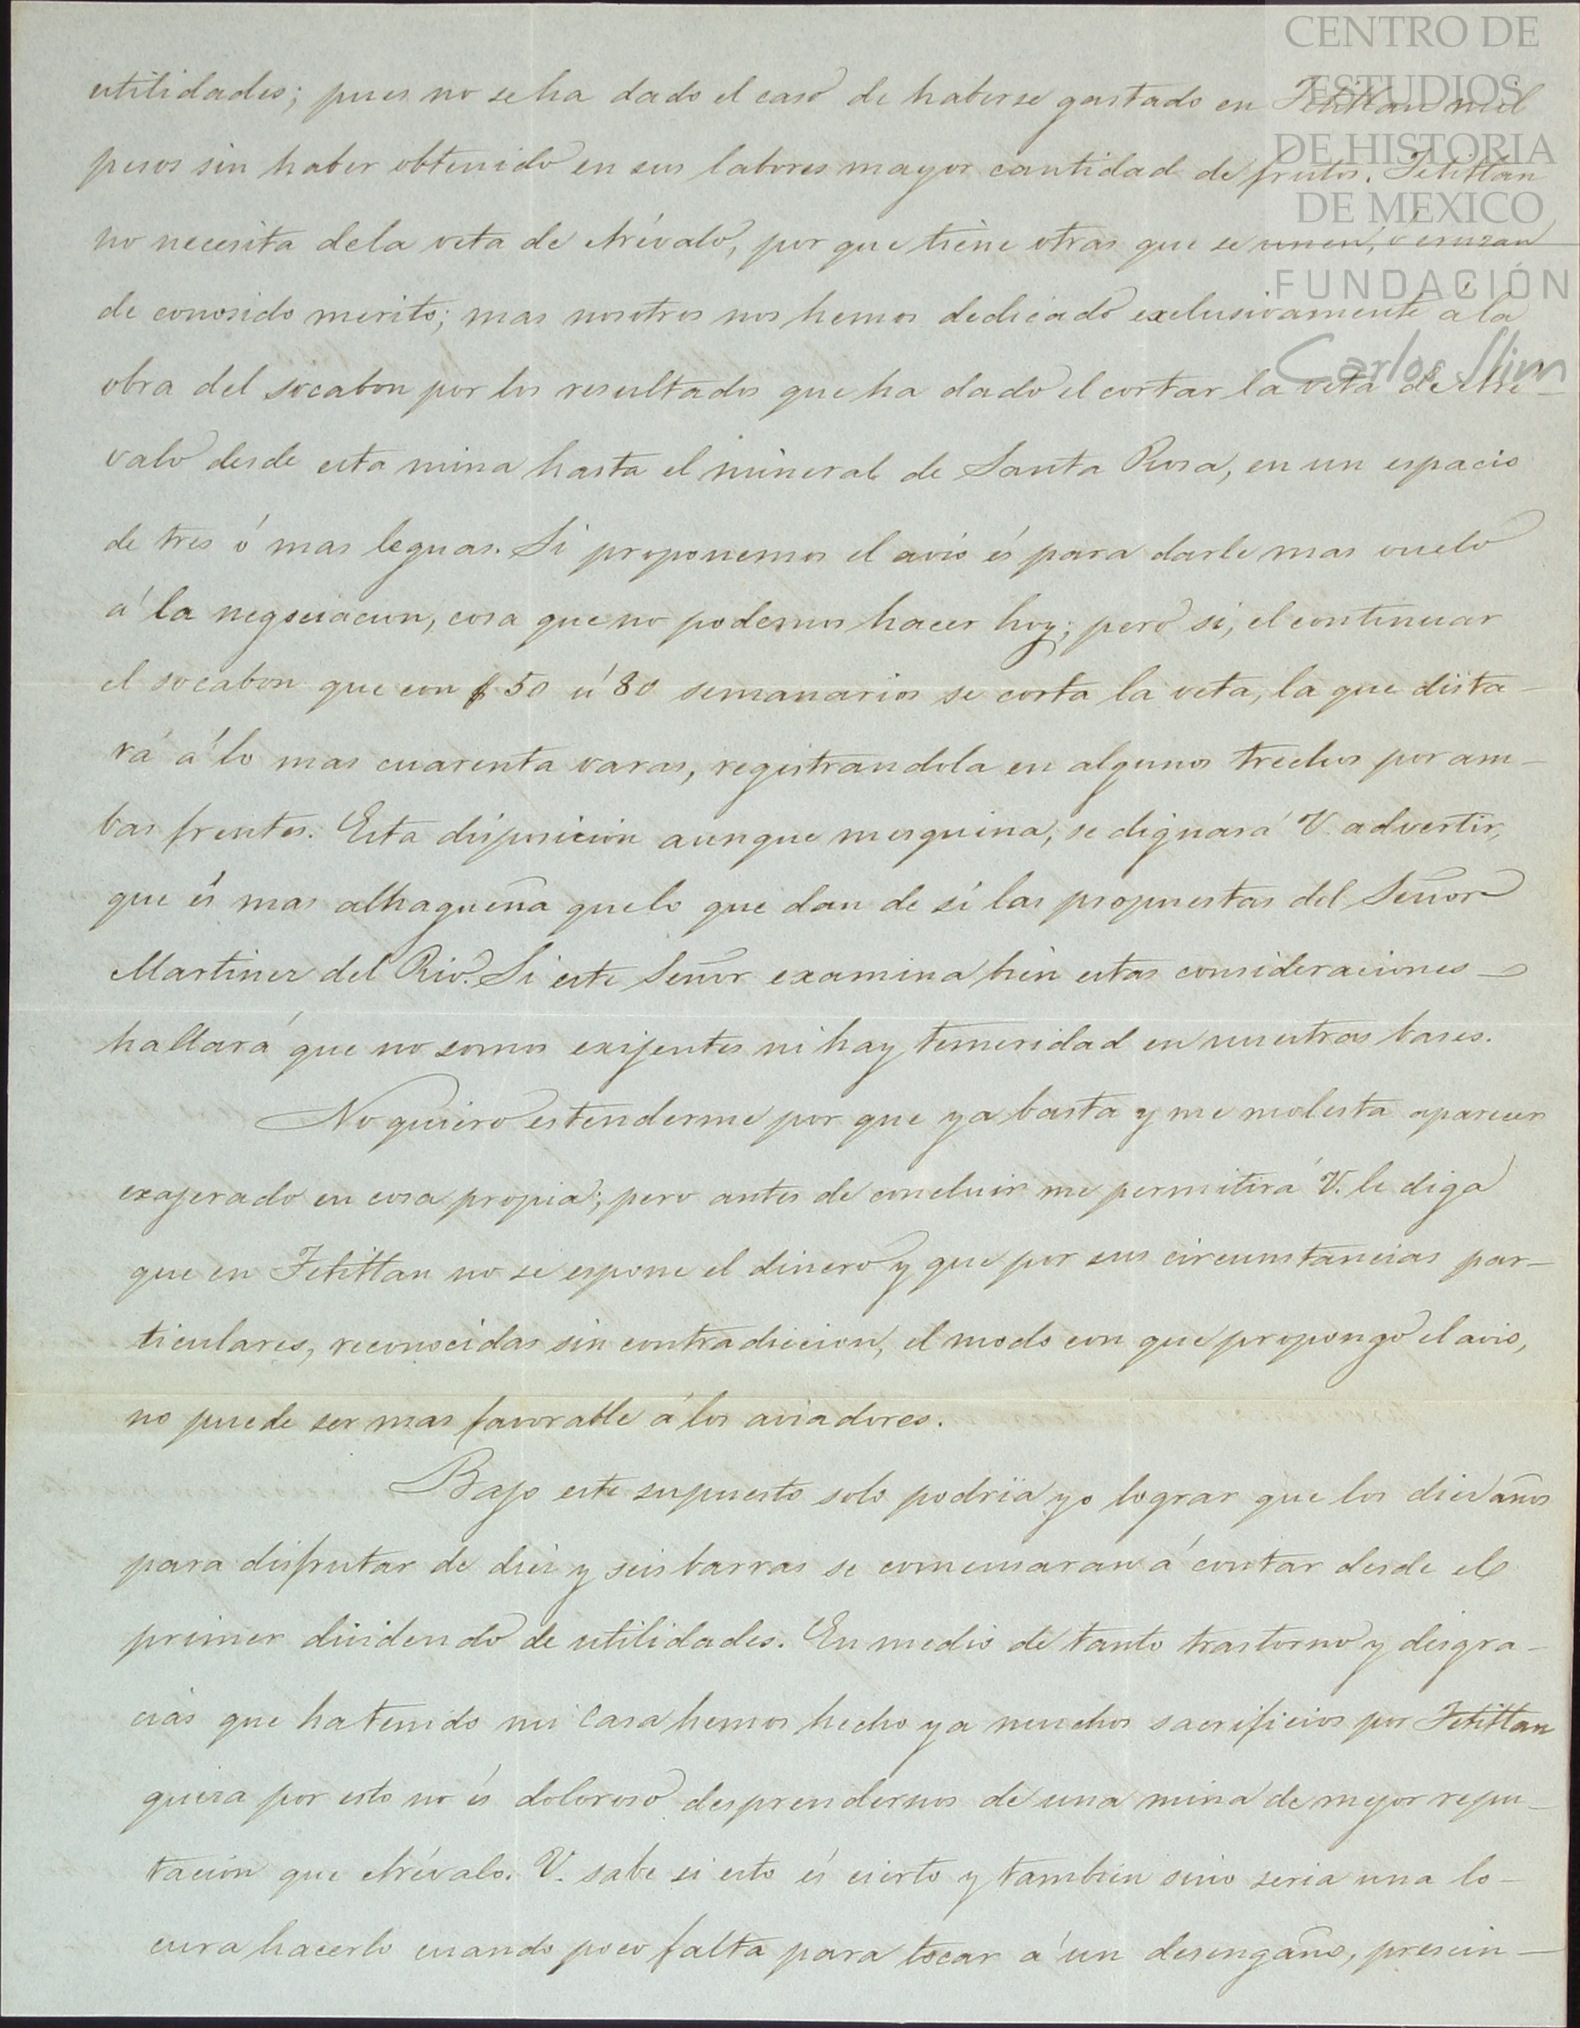 CENTRO DE
ESTUDIOS
DE HISTORIA
DE MÉXICO
FUNDACIÓN
Carlos Slim
utilidades; pues no se ha dado el caso de haberse gastado en Tetitlan mil
pesos sin haber obtenido en sus labores mayor cantidad de frutos. Tetitlan
no necesita dela veta de Arévalo, por que tiene otras que se unen, ó cruzan
de conosido merito; mas nosotros nos hemos dedicado exclusivamente á la
obra del socabon por los resultados que ha dado el cortar la veta de Aré-
valo desde esta mina hasta el mineral de Santa Rosa, en un espacio
de tres ó mas leguas. Si proponemos el avio és para darle mas vuelo
á la negociacion, cosa que no podemos hacer hoy; pero si, el continuar
el socabon que con $50 ú 80 semanarios se corta la veta, la que dista-
rá á lo mas cuarenta varas, registrandola en algunos trechos por am-
bas frentes. Esta disposicion aunque mesquina, se dignará V. advertir,
que és mas alhagueña quelo que dan de sí las propuestas del Señor
Martinez del Rio. Si este Señor examina bien estas consideraciones
hallará que no somos exijentes ni hay temeridad en nuestras bases.
No quiero estenderme por que ya basta y me molesta aparecer
exajerado en cosa propia; pero antes de concluir me permitirá V. le diga
que en Tetitlan no se espone el dinero y que por sus circunstancias par-
ticulares, reconocidas sin contradiccion, el modo con que propongo el avio,
no puede ser mas favorable á los aviadores.
Bajo este supuesto solo podria yo lograr que los diez años
para disfrutar de diez y seis barras se comensaran á contar desde el
primer dividendo de utilidades. En medio de tanto trastorno y desgra-
cias que ha tenido mi Casa hemos hecho ya muchos sacrificios por Tetitlan
quiza por esto no és doloroso desprendernos de una mina de mejor repu-
tacion que Arévalo. V. sabe si esto és cierto y tambien sino seria una lo-
cura hacerlo cuando poco falta para tocar á un desengaño, presin-